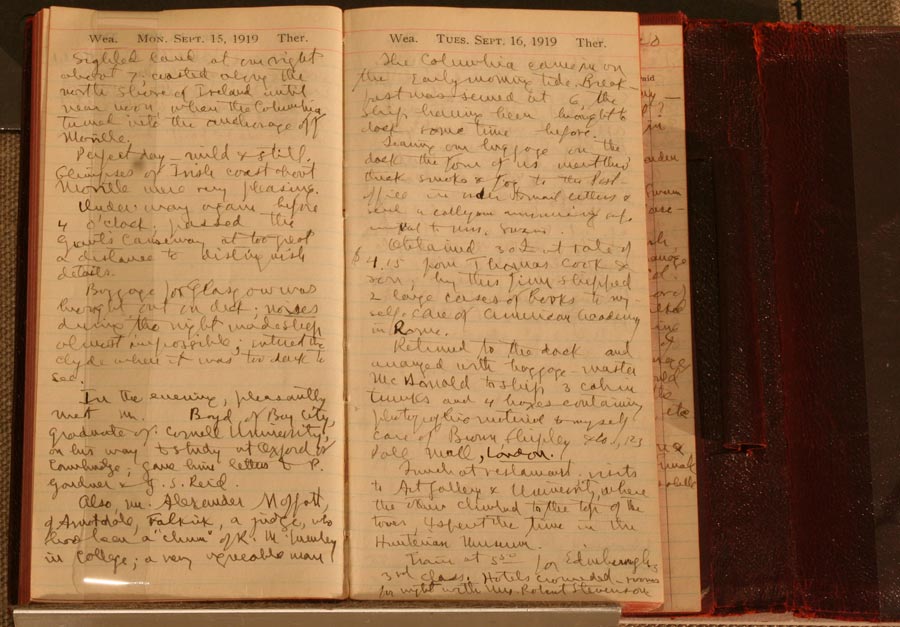 Wea. MON. SEPT. 15, 1919 Ther.
Sighted land at on our right
about 7; coasted along the
north shore of Ireland until
near noon, when the Columbia
turned into the anchorage off
Moville.
Perfect day – mild & still.
Glimpses of Irish coast about
Moville were very pleasing.
Under way again before
4 o'clock; passed the
Giant's Causeway at too great
a distance to distinguish
details.
Baggage for Glasgow was
brought out on deck; noises
during the night made sleep
almost impossible; entered the
Clyde when it was too dark to
see.
In the evening, pleasantly
met Mr. Boyd of Bay City,
graduate of Cornell University,
on his way to study at Oxford or
Cambridge; gave him letters to P.
Gardner & J. S. Reid.
Also, Mr. Alexander Moffatt,
of Arnotdale, Falkirk, a judge, who
had been a "chum" of R. M.
in College; a very agreeable man
Wea. TUES. SEPT. 16, 1919 Ther.
The Columbia came in on
the early morning tide. Break-
fast was served at 6, the
ship having been brought to
dock some time before.
Leaving our luggage on the
dock the four of us went thru
thick smoke & fog to the Post-
office in order to mail letters &
send a cablegram announcing safe
arrival to Mrs.
Obtained 30£ at rate of
$4.15 from Thomas Cook &
Son; by this firm shipped
2 large cases of books to my-
self care of American Academy
in Rome.
Returned to the dock and
arranged with baggage-master
McDonald to ship 3 cabin
trunks and 4 boxes containing
photographic material to myself
care of Brown Shipley & Co., 123
Pall Mall, London.
Lunch at restaurant. Visits
to Art Gallery & University, where
the others climbed to the top of the
tower, & spent the time in the
Hunterian Museum.
Train at 5:50 for Edinburgh,
3rd class. Hotels crowded – rooms
for night with Mrs. Robert Stevenson